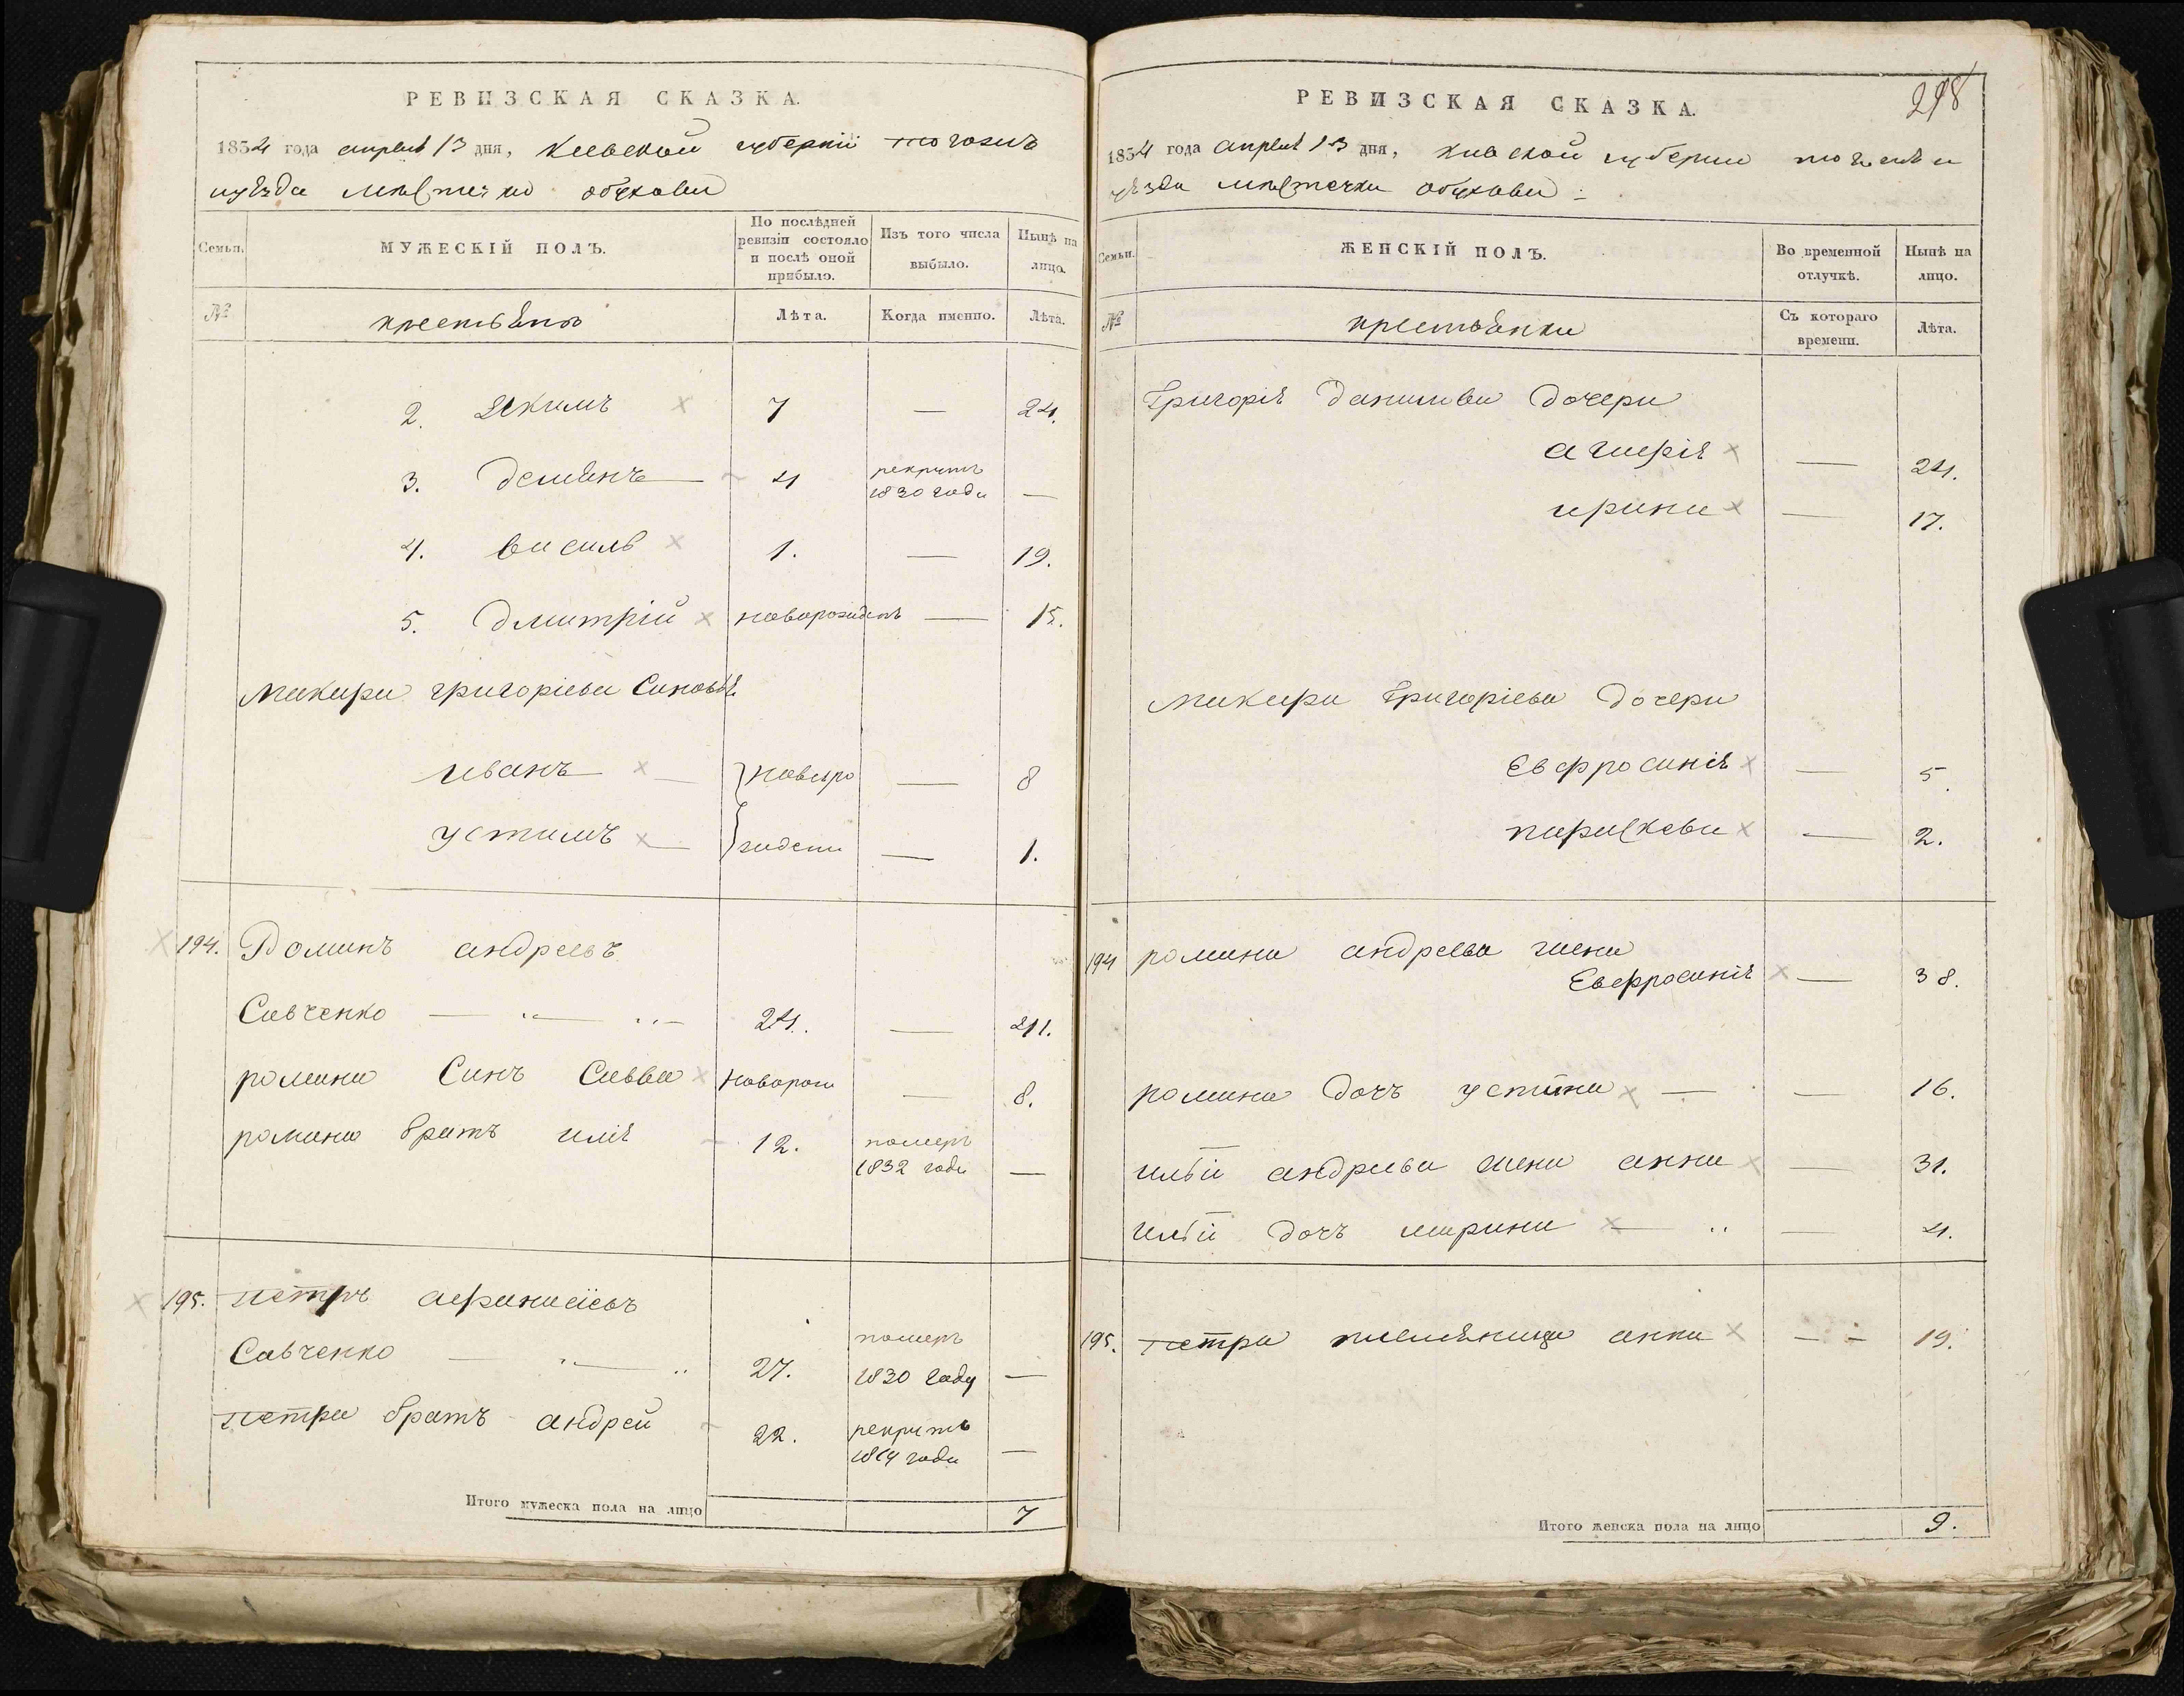 РЕВИЗСКАЯ СКАЗКА.
1834 года апреля 13 дня, Киевской губернии
уезда местечко обухова
Семьи.
МУЖЕСКІЙ ПОЛЪ.
По послѣдней ревизіи состояло и послѣ оной прибыло.
Изъ того числа выбыло.
Нынѣ на лицо.
№
крестьяне
Лѣта.
Когда именно.
Лѣта.
2. Якимъ 7 — 24.
3. Демянъ 4 рекрутъ 1830 года —
4. василь 1. — 19.
5. Дмитрій новорожденъ — 15.
Макара григоріева Синовья
иванъ новоро — 8
устимъ ждени — 1.
194. Романъ андреевъ
Савченко 24. — 41.
романа Синъ Савва новорож — 8.
романа братъ илія 12. померъ 1832 года —
195. петръ афанасіевъ
Савченко 27. померъ 1830 году —
петра братъ андрей 22. рекрутъ года —
Итого мужеска пола на лицо 7
298
РЕВИЗСКАЯ СКАЗКА.
1834 года апреля 13 дня, киевской губернии
уезда местечка обухова
Семьи.
ЖЕНСКІЙ ПОЛЪ.
Во временной отлучкѣ.
Нынѣ на лицо.
№
крестьянки
Съ котораго времени.
Лѣта.
Григорія данилова дочери
агафія — 24.
ирина — 17.
Макара Григоріева дочери
Евфросинія — 5.
параскева — 2.
194 романа андреева жена
Евфросинія — 38.
романа дочъ устина — 16.
ильіи андреева жена анна — 31.
ильіи дочъ марина — 4.
195. петра племяница анна — 19.
Итого женска пола на лицо 9.